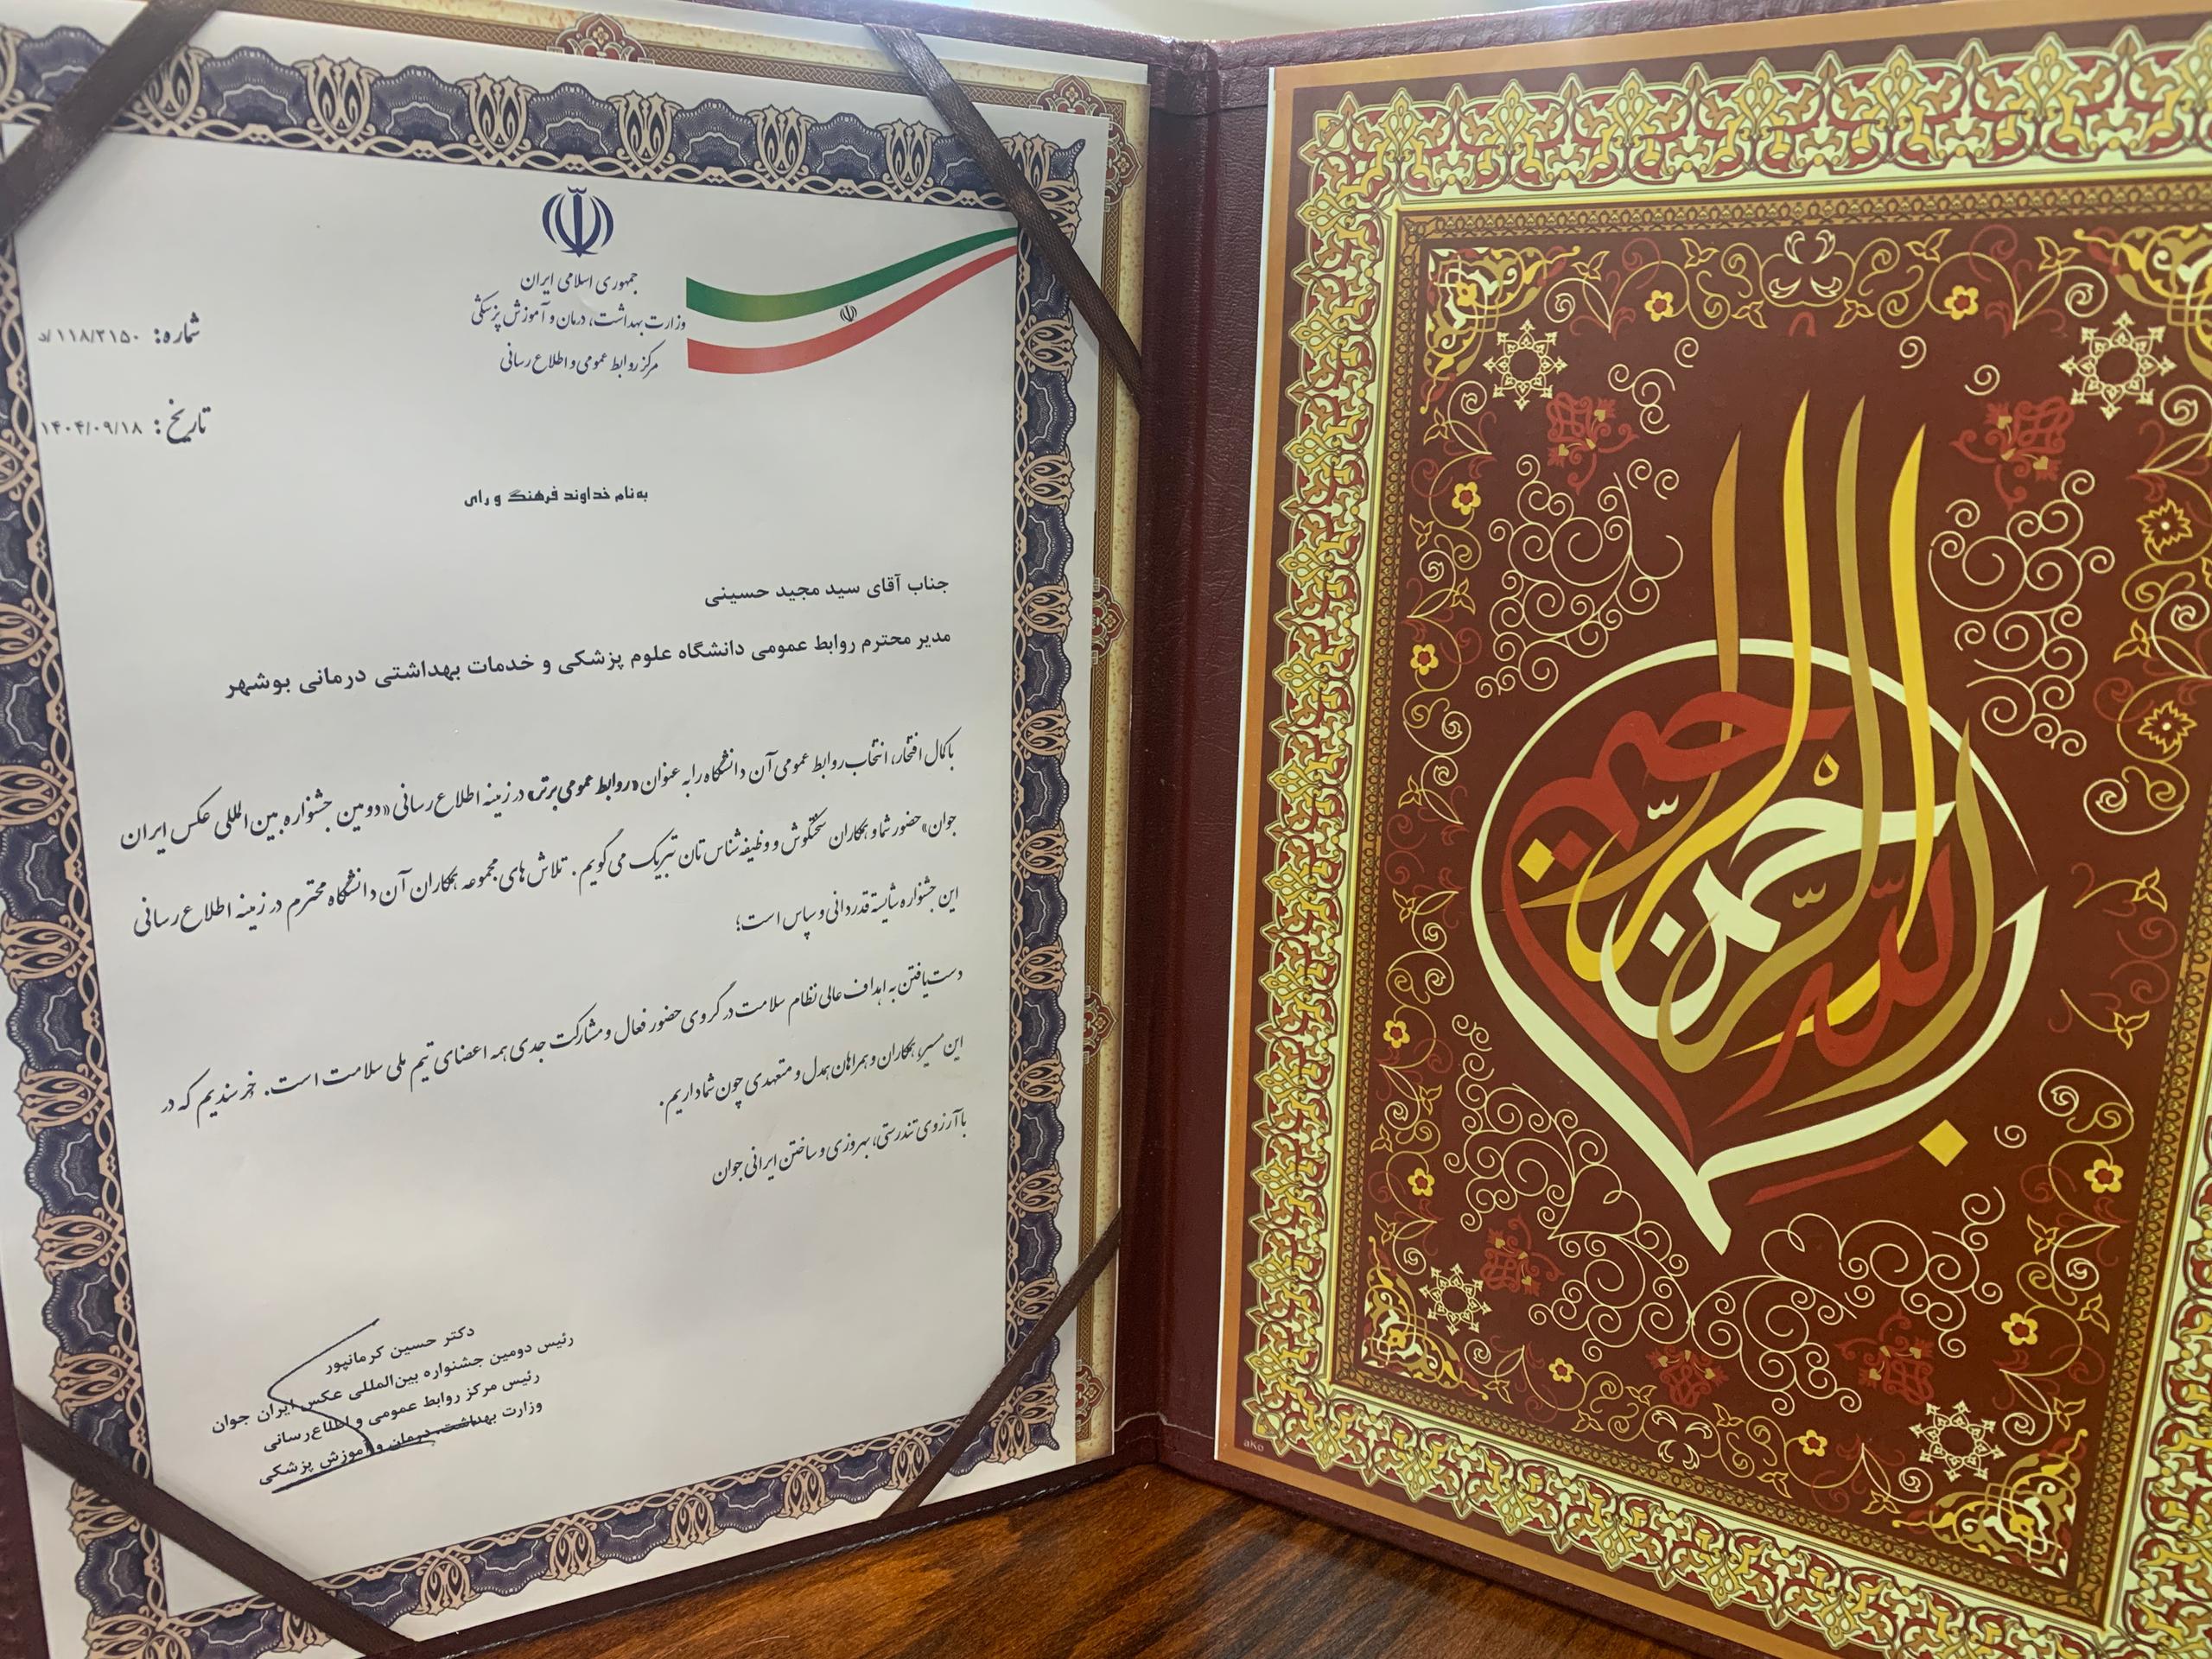 جمهوری اسلامی ایران
وزارت بهداشت، درمان و آموزش پزشکی
مرکز روابط عمومی و اطلاع رسانی
شماره: ۱۱۸/۳۱۵۰/د
تاریخ: ۱۴۰۴/۰۹/۱۸
به نام خداوند فرهنگ و رای
جناب آقای سید مجید حسینی
مدیر محترم روابط عمومی دانشگاه علوم پزشکی و خدمات بهداشتی درمانی بوشهر
با کمال افتخار، انتخاب روابط عمومی آن دانشگاه را به عنوان «روابط عمومی برتر» در زمینه اطلاع رسانی «دومین جشنواره بین المللی عکس ایران
جوان» حضور شما و همکاران سختکوش و وظیفه شناس تان تبریک می گویم. تلاش های مجموعه همکاران آن دانشگاه محترم در زمینه اطلاع رسانی
این جشنواره شایسته قدردانی و سپاس است؛
دست یافتن به اهداف عالی نظام سلامت در گروی حضور فعال و مشارکت جدی همه اعضای تیم ملی سلامت است. خرسندیم که در
این مسیر، همکاران و همراهان همدل و متعهدی چون شما داریم.
با آرزوی تندرستی، بهروزی و ساختن ایرانی جوان
دکتر حسین کرمانپور
رئیس دومین جشنواره بین‌المللی عکس ایران جوان
رئیس مرکز روابط عمومی و اطلاع‌رسانی
وزارت بهداشت، درمان و آموزش پزشکی
بسم الله الرحمن الرحیم
aKo